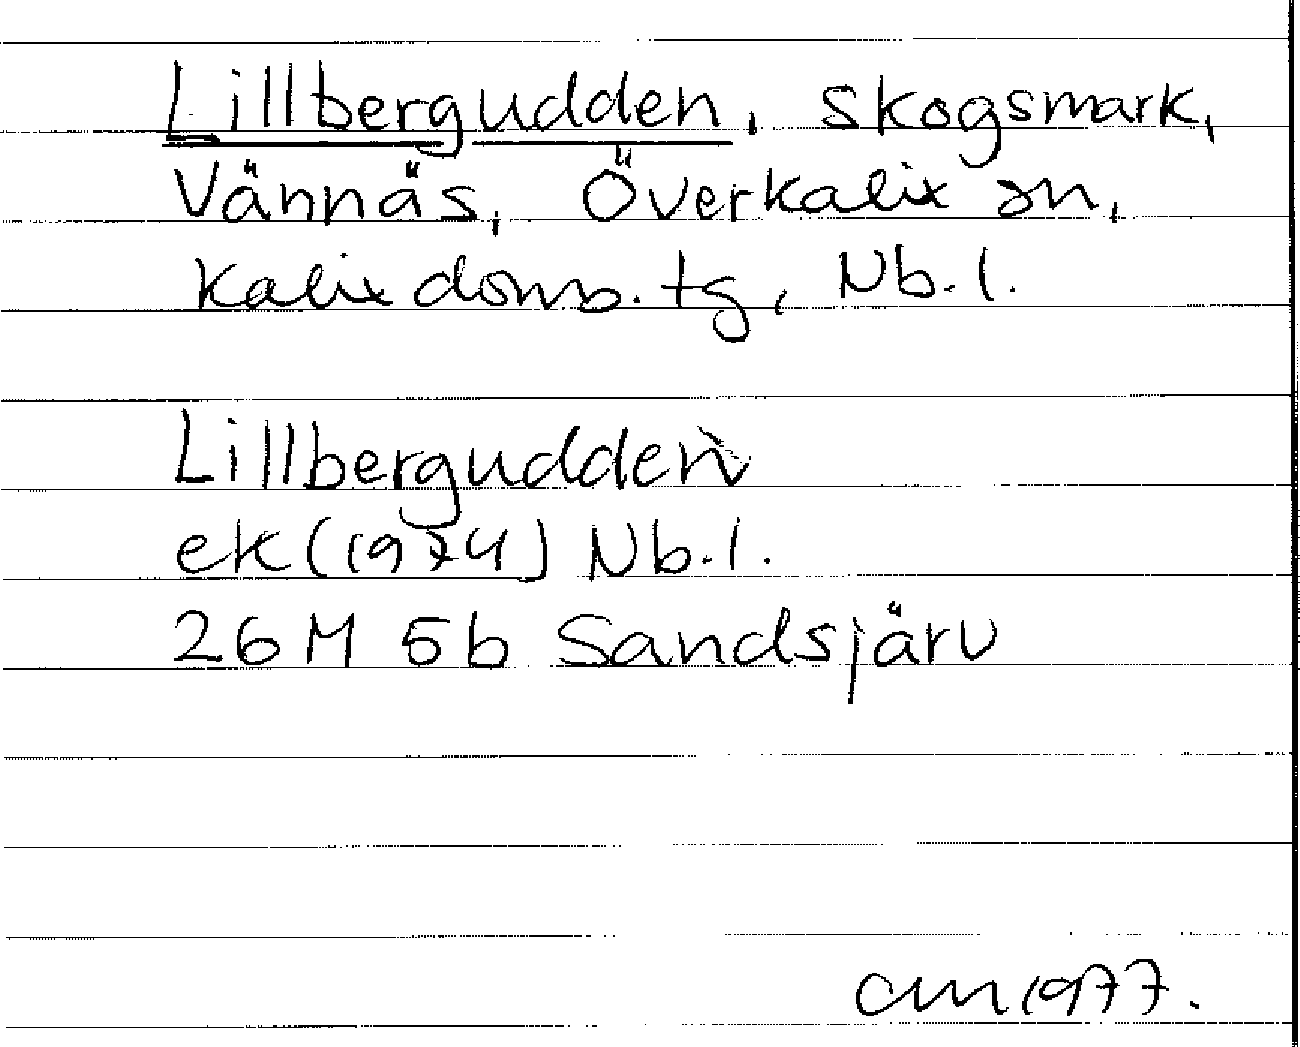 Lillbergudden, skogsmark,
Vännäs, Överkalix sn,
Kalix doms. tg, Nb. l.
Lillbergudden
ek (1974) Nb. l.
26 M 5b Sandsjärv
am 1977.